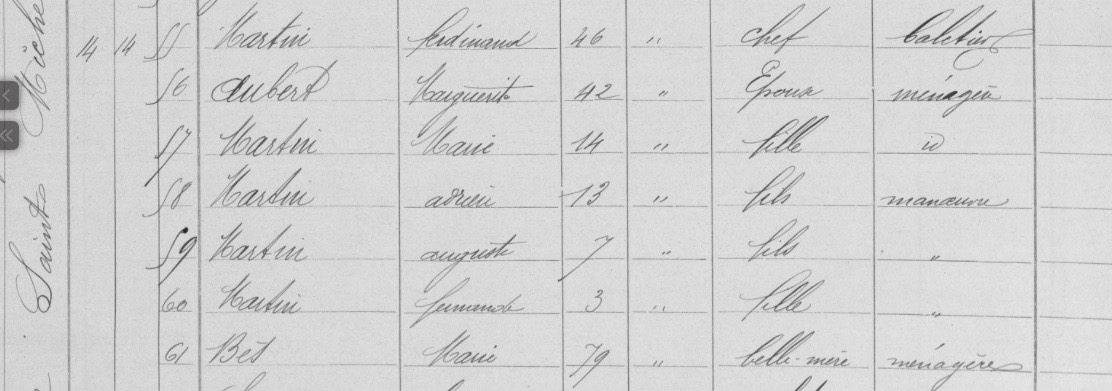 Sainte Miche
14 14 55 Martin ferdinand 46 " chef
56 Aubert Marguerite 42 " Epouse ménagère
57 Martin Marie 14 " fille id
58 Martin adrien 13 " fils manœuvre
59 Martin auguste 7 " fils "
60 Martin fernande 3 " fille "
61 Bès Marie 79 " belle-mère ménagères